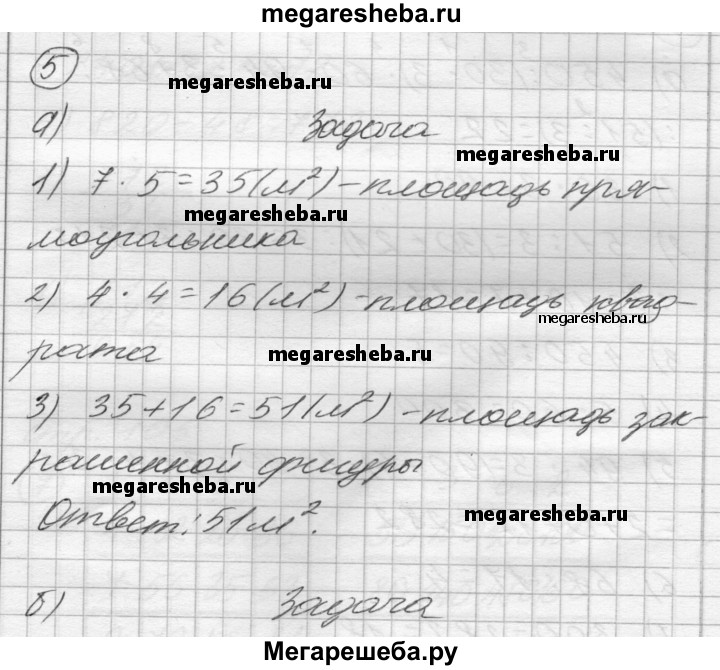 megaresheba.ru
5
megaresheba.ru
а) Задача
megaresheba.ru
1) 7 · 5 = 35 (м²) - площадь пря-
megaresheba.ru
моугольника
2) 4 · 4 = 16 (м²) - площадь квад-
megaresheba.ru
рата
megaresheba.ru
3) 35 + 16 = 51 (м²) - площадь зак-
рашенной фигуры
megaresheba.ru
Ответ: 51 м².
megaresheba.ru
б) Задача
Мегарешеба.ру